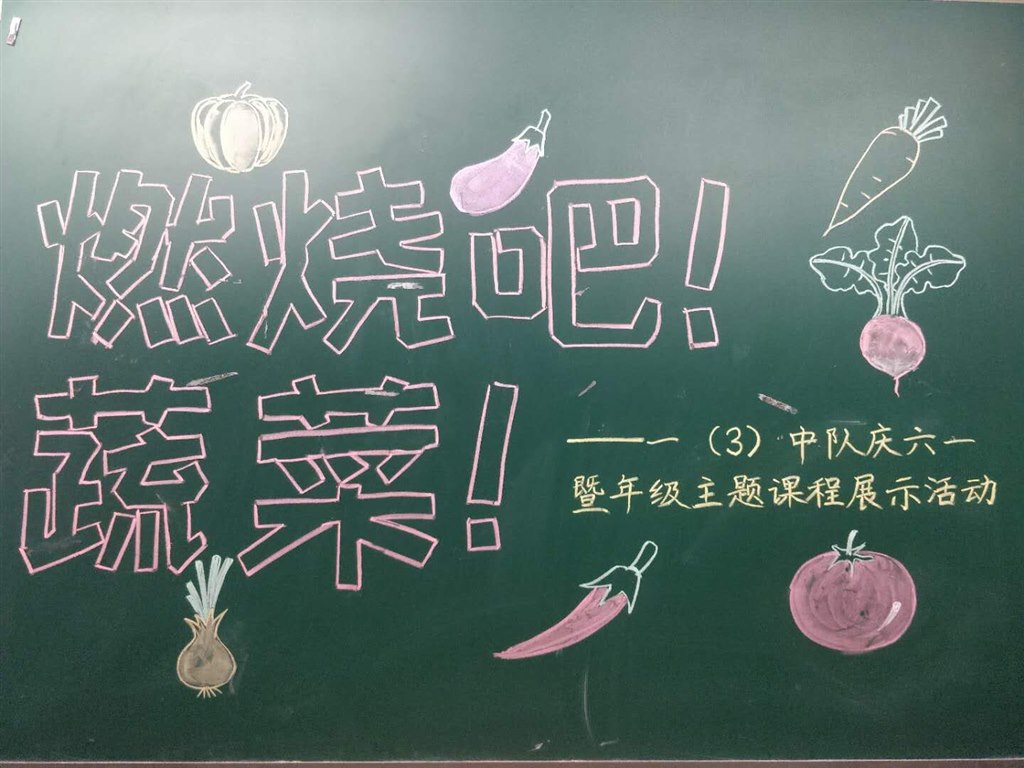 燃烧吧!
蔬菜!
——一（3）中队庆六一
暨年级主题课程展示活动